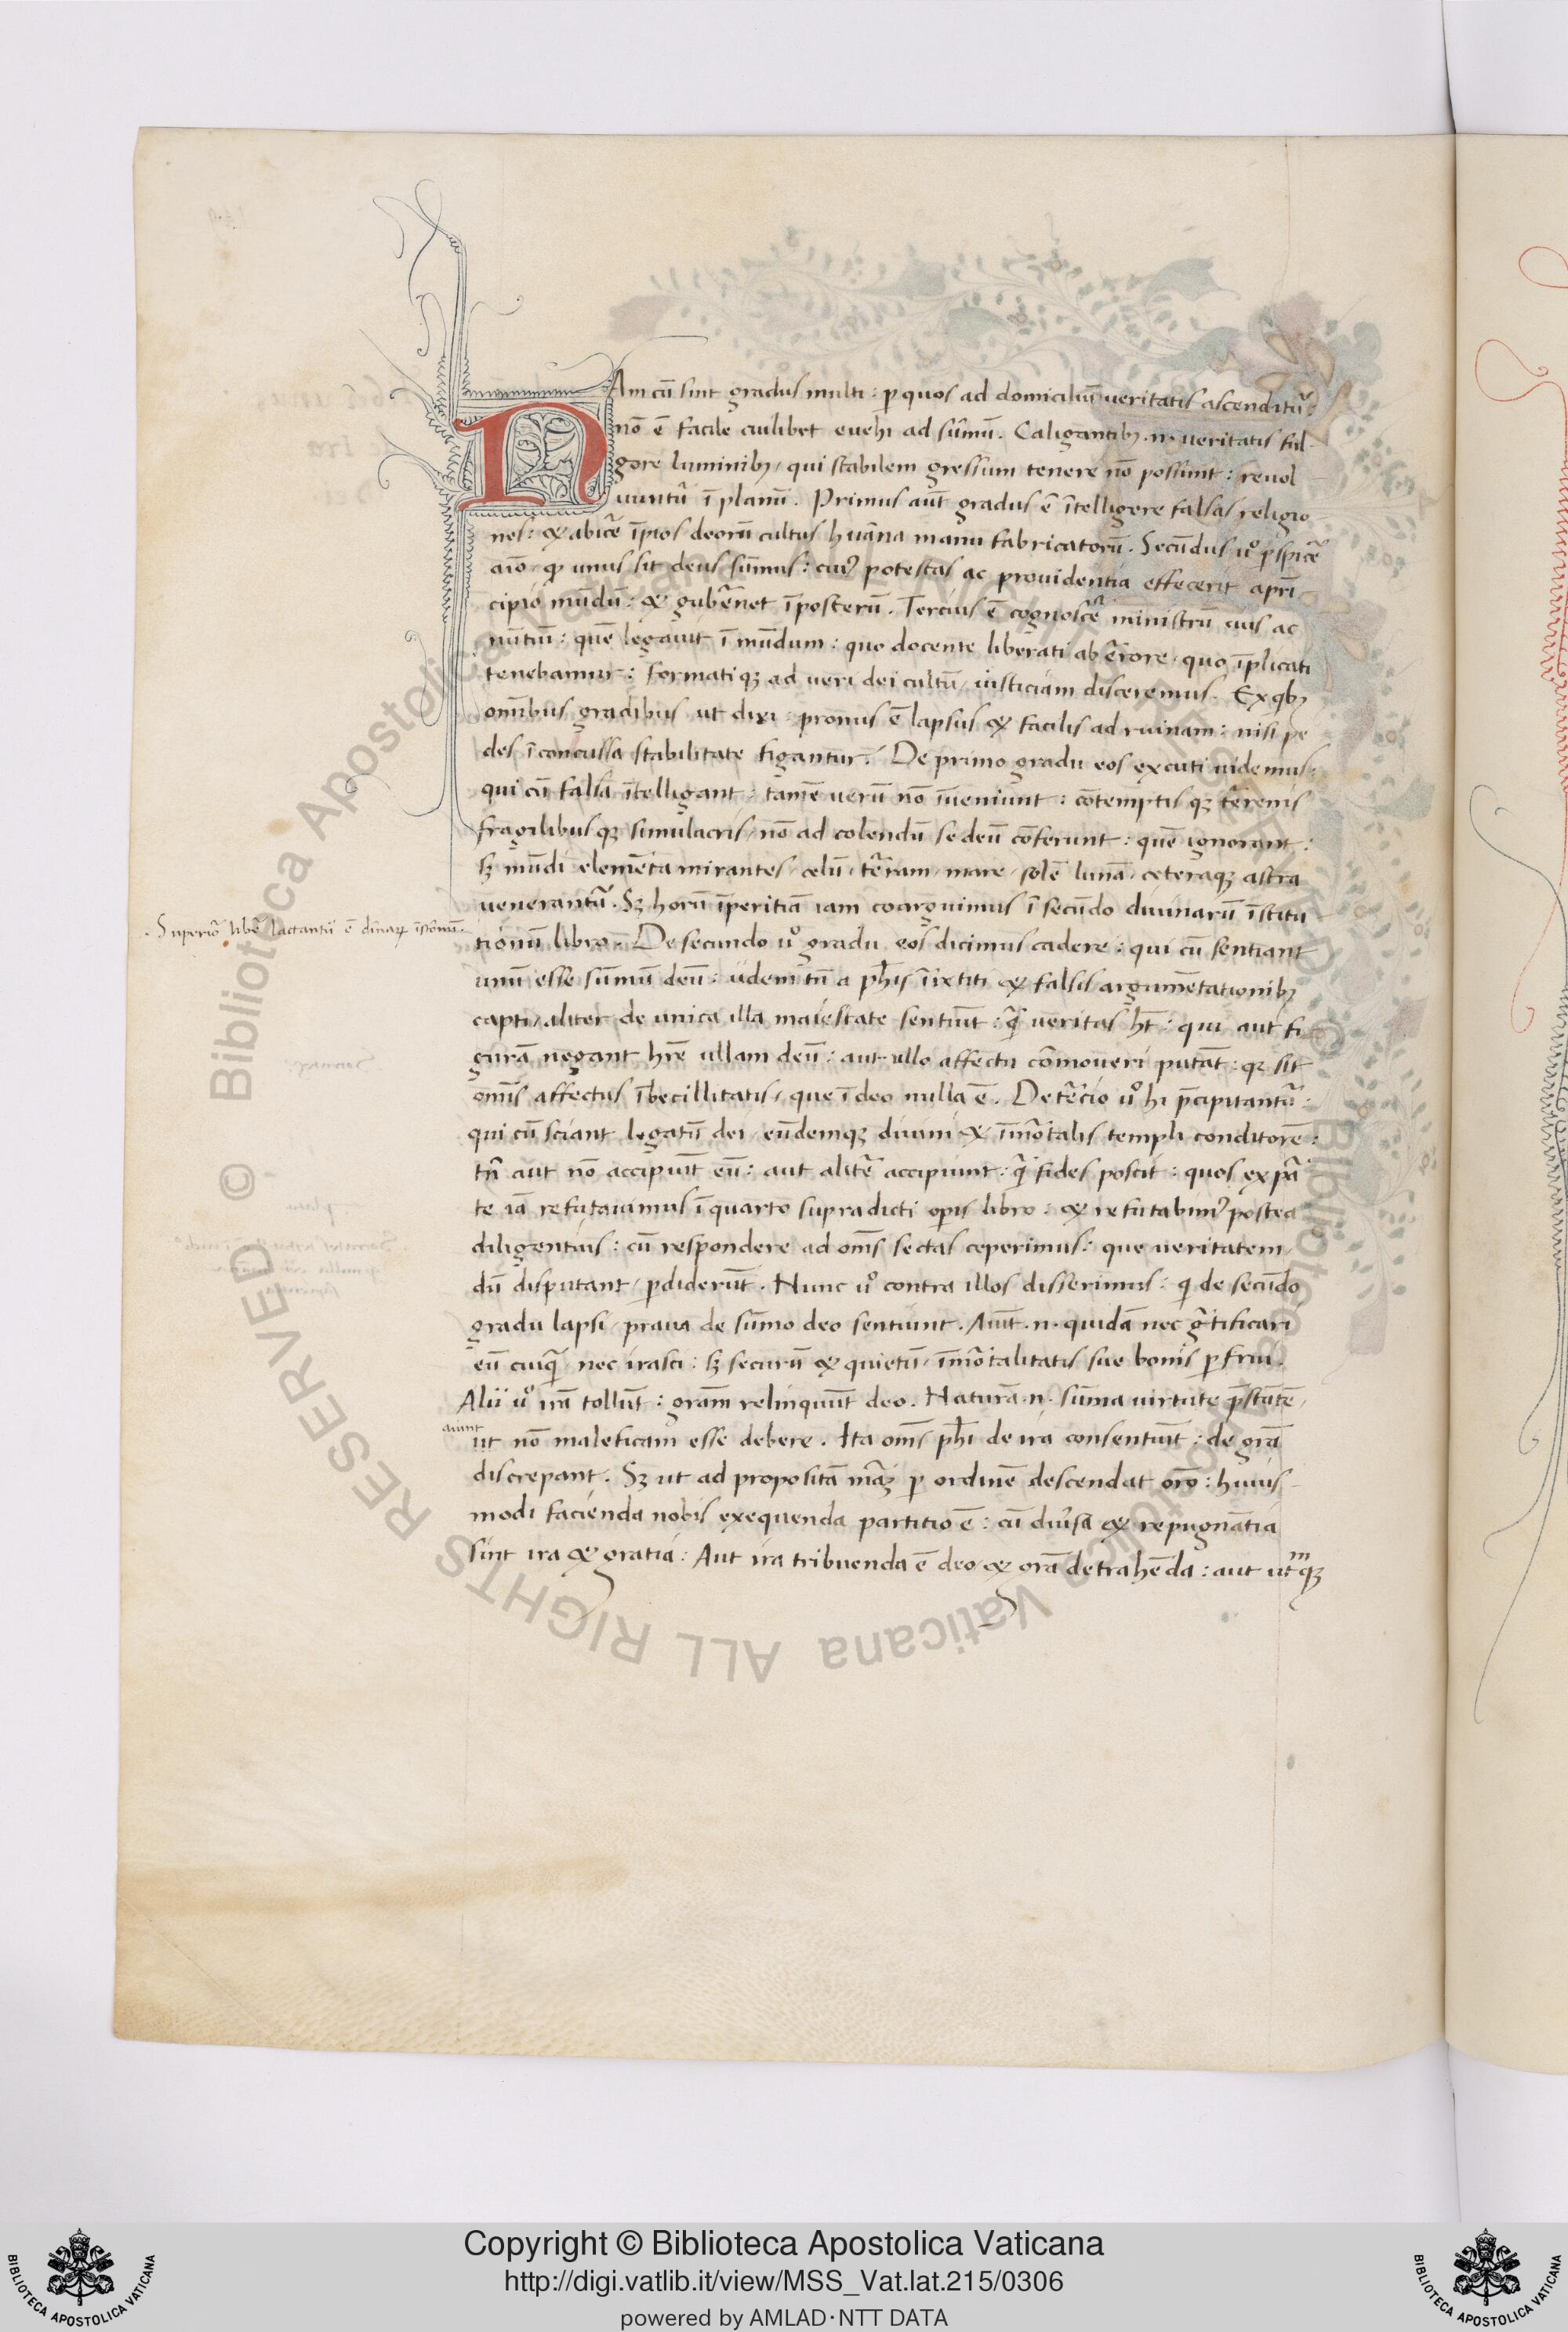 NAm cū sint gradus multi : ꝑ quos ad domiciliū veritatis ascenditur̄ :
nō ē facile cuilibet evehi ad sūmū . Caligantibꝫ .n. veritatis ful-
gore luminibꝫ / qui stabilem gressum tenere nō possunt : revol
vuntur̄ ī planū . Primus aūt gradus ē ītelligere falsas religio
nes : & abicē īpios deorū cultus huāna manu fabricatorū . Secūdus ůo ꝑspicē
aīo / ꝙ unus sit deus sūmus : cuiꝰ potestas ac providentia effecerit aprī
cipio mūdū : & gubēnet īposterū . Tercius ē cognoscē ministrū eius ac
nūtiū : quē legavit ī mūdum : quo docente liberati ab ērore / quo īplicati
tenebamur : formatiqꝫ ad veri dei cultū / iusticiam disceremus . Ex qbꝫ
omībus gradibus ut dixi : pronus ē lapsus & facilis ad ruinam : nisi pe
des īconcussa stabilitate figantur . De primo gradu eos excuti videmus :
qui cū falsa ītelligant : tamē verū nō īveniunt : cōtemptisqꝫ tērenis
fragilibusqꝫ simulacris / nō ad colendū se deū cōferunt : quē ignorant :
sꝫ mūdi elemēta mirantes / celū / tēram / mare / solē lunā / ceteraqꝫ astra
venerantur̄ . Sꝫ horū īperitiā iam coarguimus ī secūdo divinarū īstitu
.Superiō libē lactantii ē dīnaꝝ īstōnū.
tionū libro . De secundo ůo gradu eos dicimus cadere : qui cū sentiant
unū esse sūmū deū : iidem tn̄ a ph̄is īixtiti & falsis argumētationibꝫ
capti / aliter de unica illa maiestate sentiūt : q̄ veritas ht̄ : qui aut fi
gurā negant hr̄e ullam deū : aut ullo affectu cōmoveri putāt : qꝛ sit
omīs affectus ībecillitatis / que ī deo nulla ē . De tēcio ůo hi p̄cipitantur̄ :
qui cū sciant legatū dei / eūdemqꝫ divini & īmōtalis templi conditorē :
tn̄ aut nō accipiūt eū : aut alitē accipiunt : q̄ fides poscit : quos ex pā
te iā refutavimus ī quarto supradicti opis libro : & refutabimꝰ postea
diligentius : cū respondere ad omīs sectas ceperimus : que veritatem /
dū disputant / ꝑdiderūt . Nunc ůo contra illos disserimus : q de secūdo
gradu lapsi / prava de sūmo deo sentiunt . Aiūt .n. quidā nec gratificari
eū cuiq̄ / nec irasci : sꝫ securū & quietū / īmōtalitatis sue bonis ꝑfrui .
Alii ůo irā tollūt : grām relinquūt deo . Naturā .n. sūma virtute p̄stātē /
aiunt
ut nō maleficam esse debere . Ita omīs ph̄i de ira consentiūt : de grā
discrepant . Sꝫ ut ad propositā māꝫ ꝑ ordinē descendat orō : huius-
modi facienda nobis exequenda partitio ē : cū divsa & repugnātia
sint ira & gratia : Aut ira tribuenda ē deo & grā detrahēda : aut utrmqꝫ
Copyright © Biblioteca Apostolica Vaticana
http://digi.vatlib.it/view/MSS_Vat.lat.215/0306
powered by AMLAD·NTT DATA
BIBLIOTECA APOSTOLICA VATICANA
BIBLIOTECA APOSTOLICA VATICANA